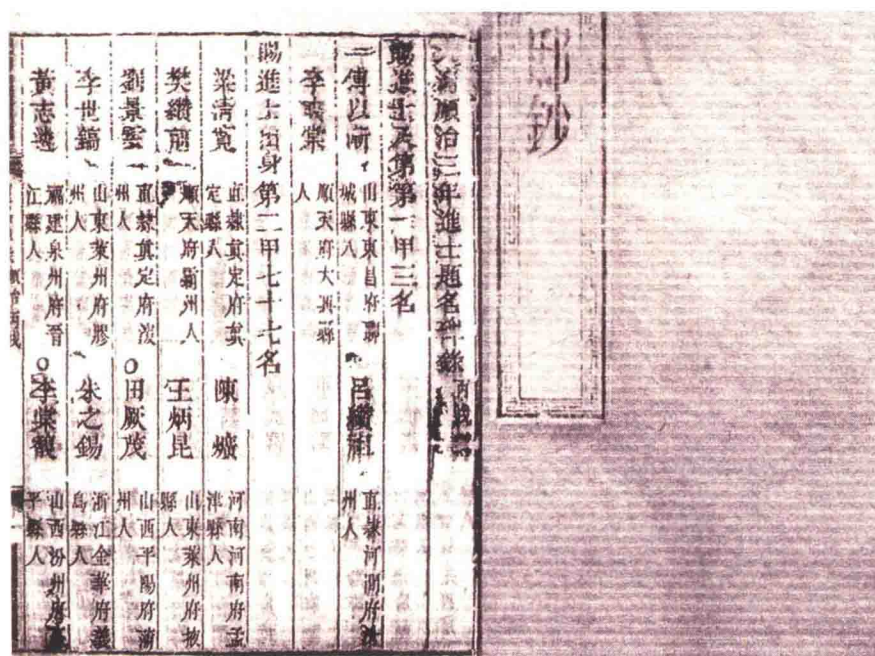 邸鈔
清順治三年進士題名碑錄
賜進士及第第一甲三名
傅以漸 山東東昌府聊城縣人 呂纘祖 直隸河間府人
李奭棠 順天府大興縣人
賜進士出身第二甲七十七名
梁清寬 直隸真定府真定縣人 陳爌 河南河南府孟津縣人
樊纘前 順天府霸州人 王炳昆 山東萊州府掖縣人
劉景雲 直隸真定府州人 田厥茂 山西平陽府蒲州人
李世鎬 山東萊州府膠州人 朱之錫 浙江金華府義烏縣人
黃志遴 福建泉州府晉江縣人 李棠 山西汾州府平縣人